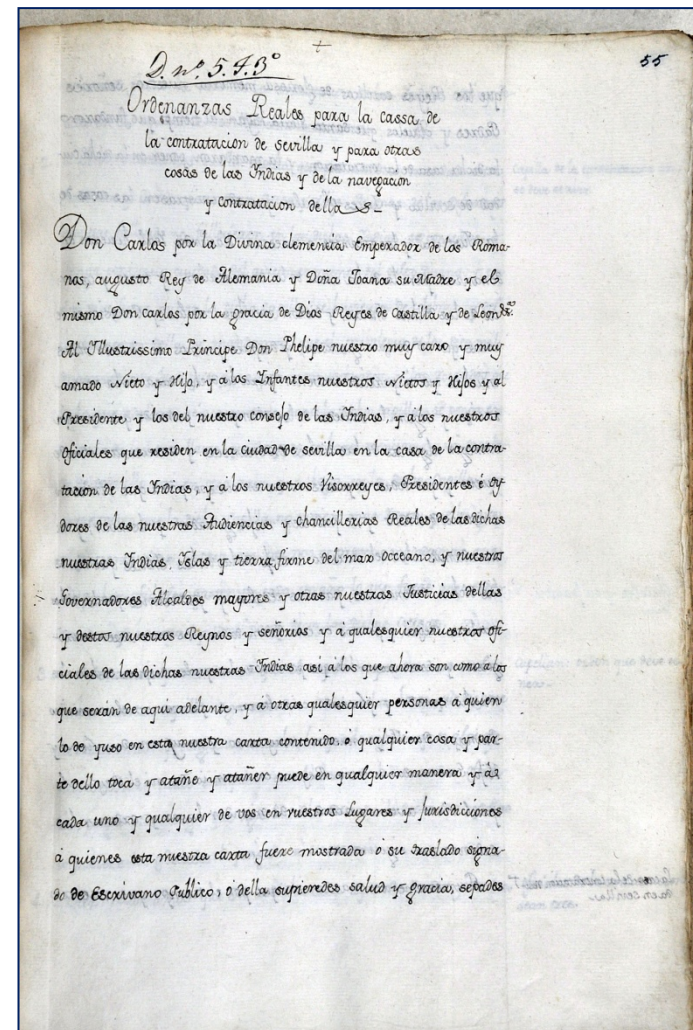 55
D. nº. 5. J. 3º
Ordenanzas Reales para la cassa de
la contratacion de sevilla y para otras
cosas de las Indias y de la navegacion
y contratacion dellas
Don Carlos por la Divina clemencia Emperador de los Roma-
nos, augusto Rey de Alemania y Doña Joana su Madre y el
mismo Don carlos por la gracia de Dios Reyes de Castilla y de Leon &ª.
Al Illustrissimo Principe Don Phelipe nuestro muy caro y muy
amado Nieto y Hijo, y á los Infantes nuestros Nietos y Hijos y al
Presidente y los del nuestro consejo de las Indias, y á los nuestros
oficiales que residen en la ciudad de sevilla en la casa de la contra-
tacion de las Indias, y á los nuestros Visorreyes, Presidentes é oy-
dores de las nuestras Audiencias y chancillerias Reales de las dichas
nuestras Indias, Islas y tierra firme del mar occeano, y nuestros
Governadores Alcaldes mayores y otras nuestras Justicias dellas
y destos nuestros Reynos y señorios y á qualesquier nuestros ofi-
ciales de las dichas nuestras Indias asi á los que ahora son como á los
que serán de aqui adelante, y á otras qualesquier personas á quien
lo de yuso en esta nuestra carta contenido, ó qualquier cosa y par-
te dello toca y atañe y atañer puede en qualquier manera y á
cada uno y qualquier de vos en vuestros Lugares y Jurisdicciones
á quienes esta nuestra carta fuere mostrada ó su traslado signa-
do de Escrivano Publico, ó della supieredes salud y gracia, sepades